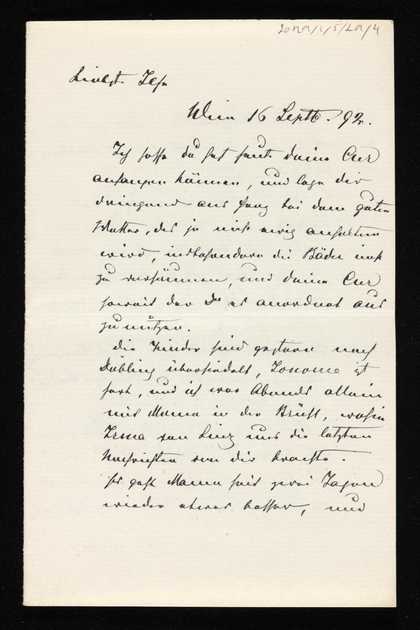 Liebste Ilse
Wien 16 Septb. 92.
Ich hoffe du hast heute deine Cur
anfangen können, und lege dir
dringend ans Herz bei dem guten
Wetter, das ja nicht ewig anhalten
wird, insbesondere die Bäder nicht
zu versäumen, und deine Cur
soweit der Dr es anordnet aus
zu nützen.
Die Kinder sind gestern nach
Döbling übersiedelt, ist
fort, und ich war Abends allein
mit Mama in der Brühl, wohin
Irma von Linz uns die letzten
Nachrichten von dir brachte.
Es geht Mama seit zwei Tagen
wieder etwas besser, und